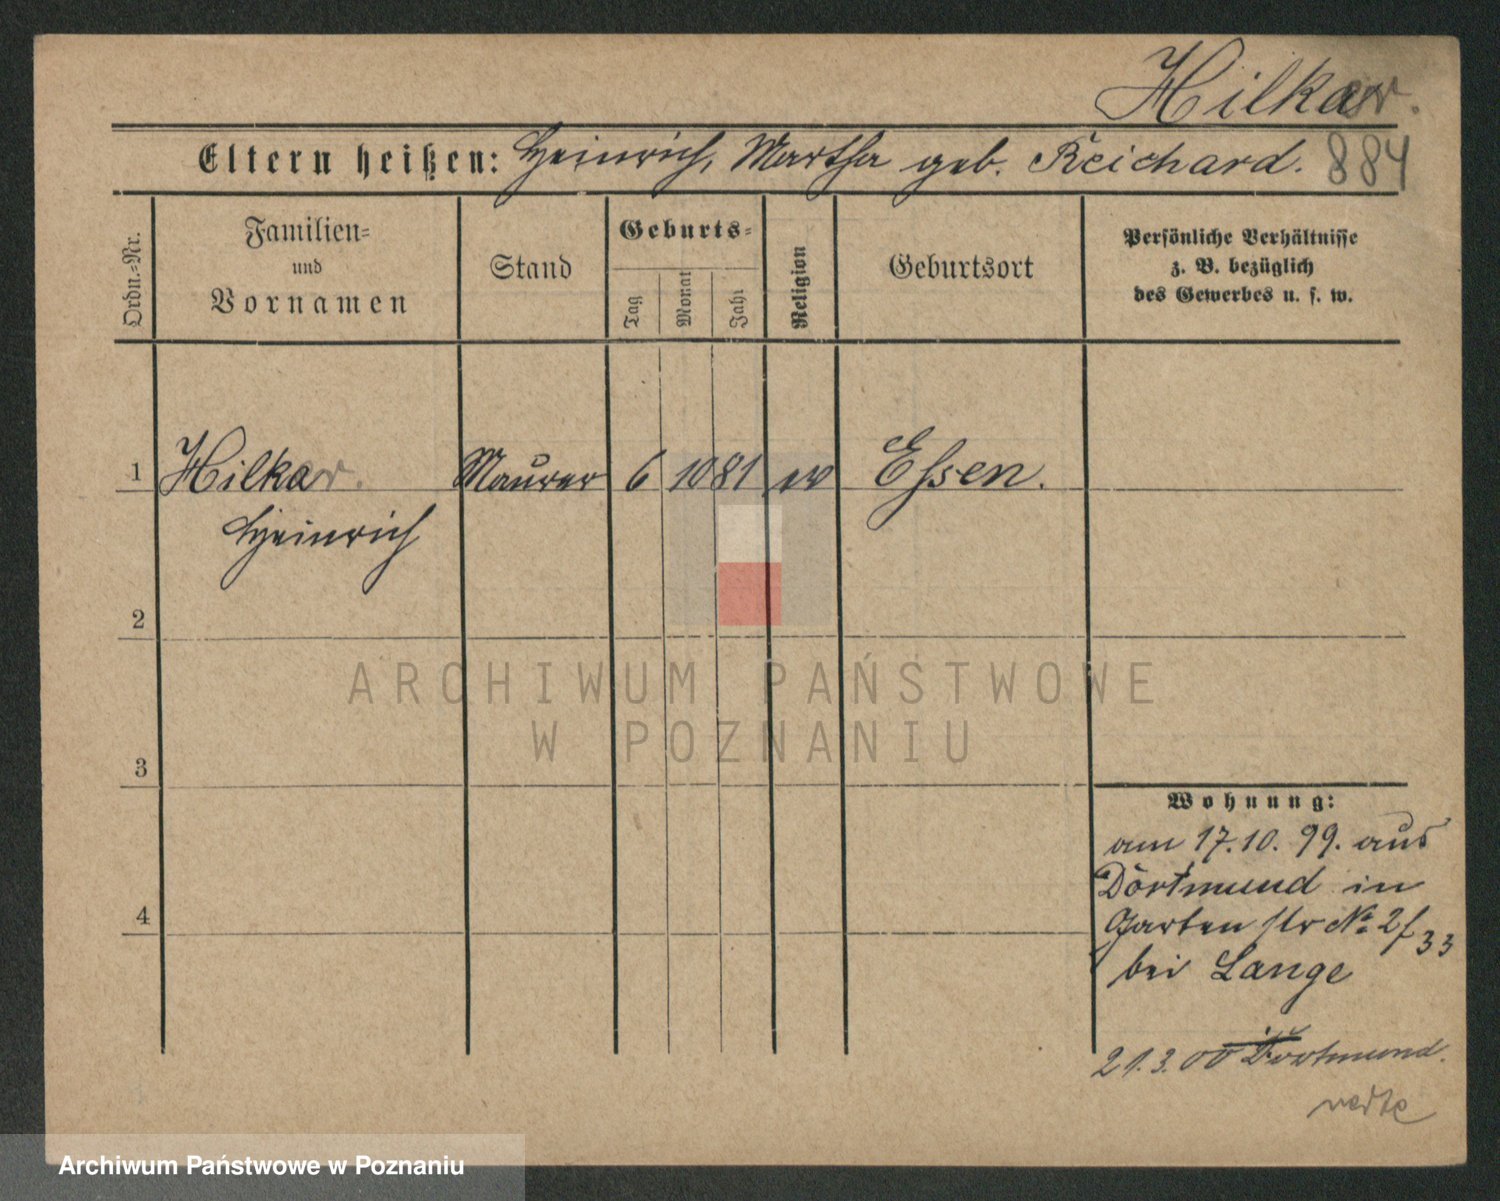 Hilkar.
Eltern heißen: Heinrich, Martha geb. Reichard. 884
Ordn.=Nr.
Familien=
und
Vornamen
Stand
Geburts=
Tag
Monat
Jahr
Religion
Geburtsort
Persönliche Verhältnisse
z. B. bezüglich
des Gewerbes u. s. w.
1 Hilkar. Maurer 6 10 81 ev Essen.
Heinrich
2
ARCHIWUM PAŃSTWOWE
W POZNANIU
3
Wohnung:
am 17.10.99. aus
Dortmund in
4 Garten str No 2f 33
bei Lange
21.3.00 Dortmund.
Archiwum Państwowe w Poznaniu